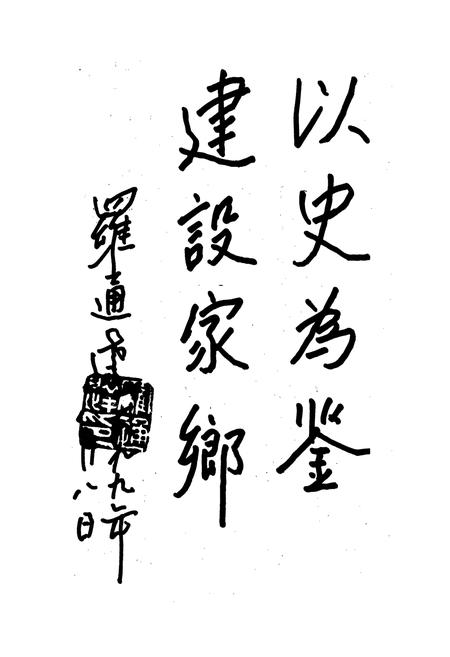 以史為鉴
建設家鄉
羅通達
九年
八日